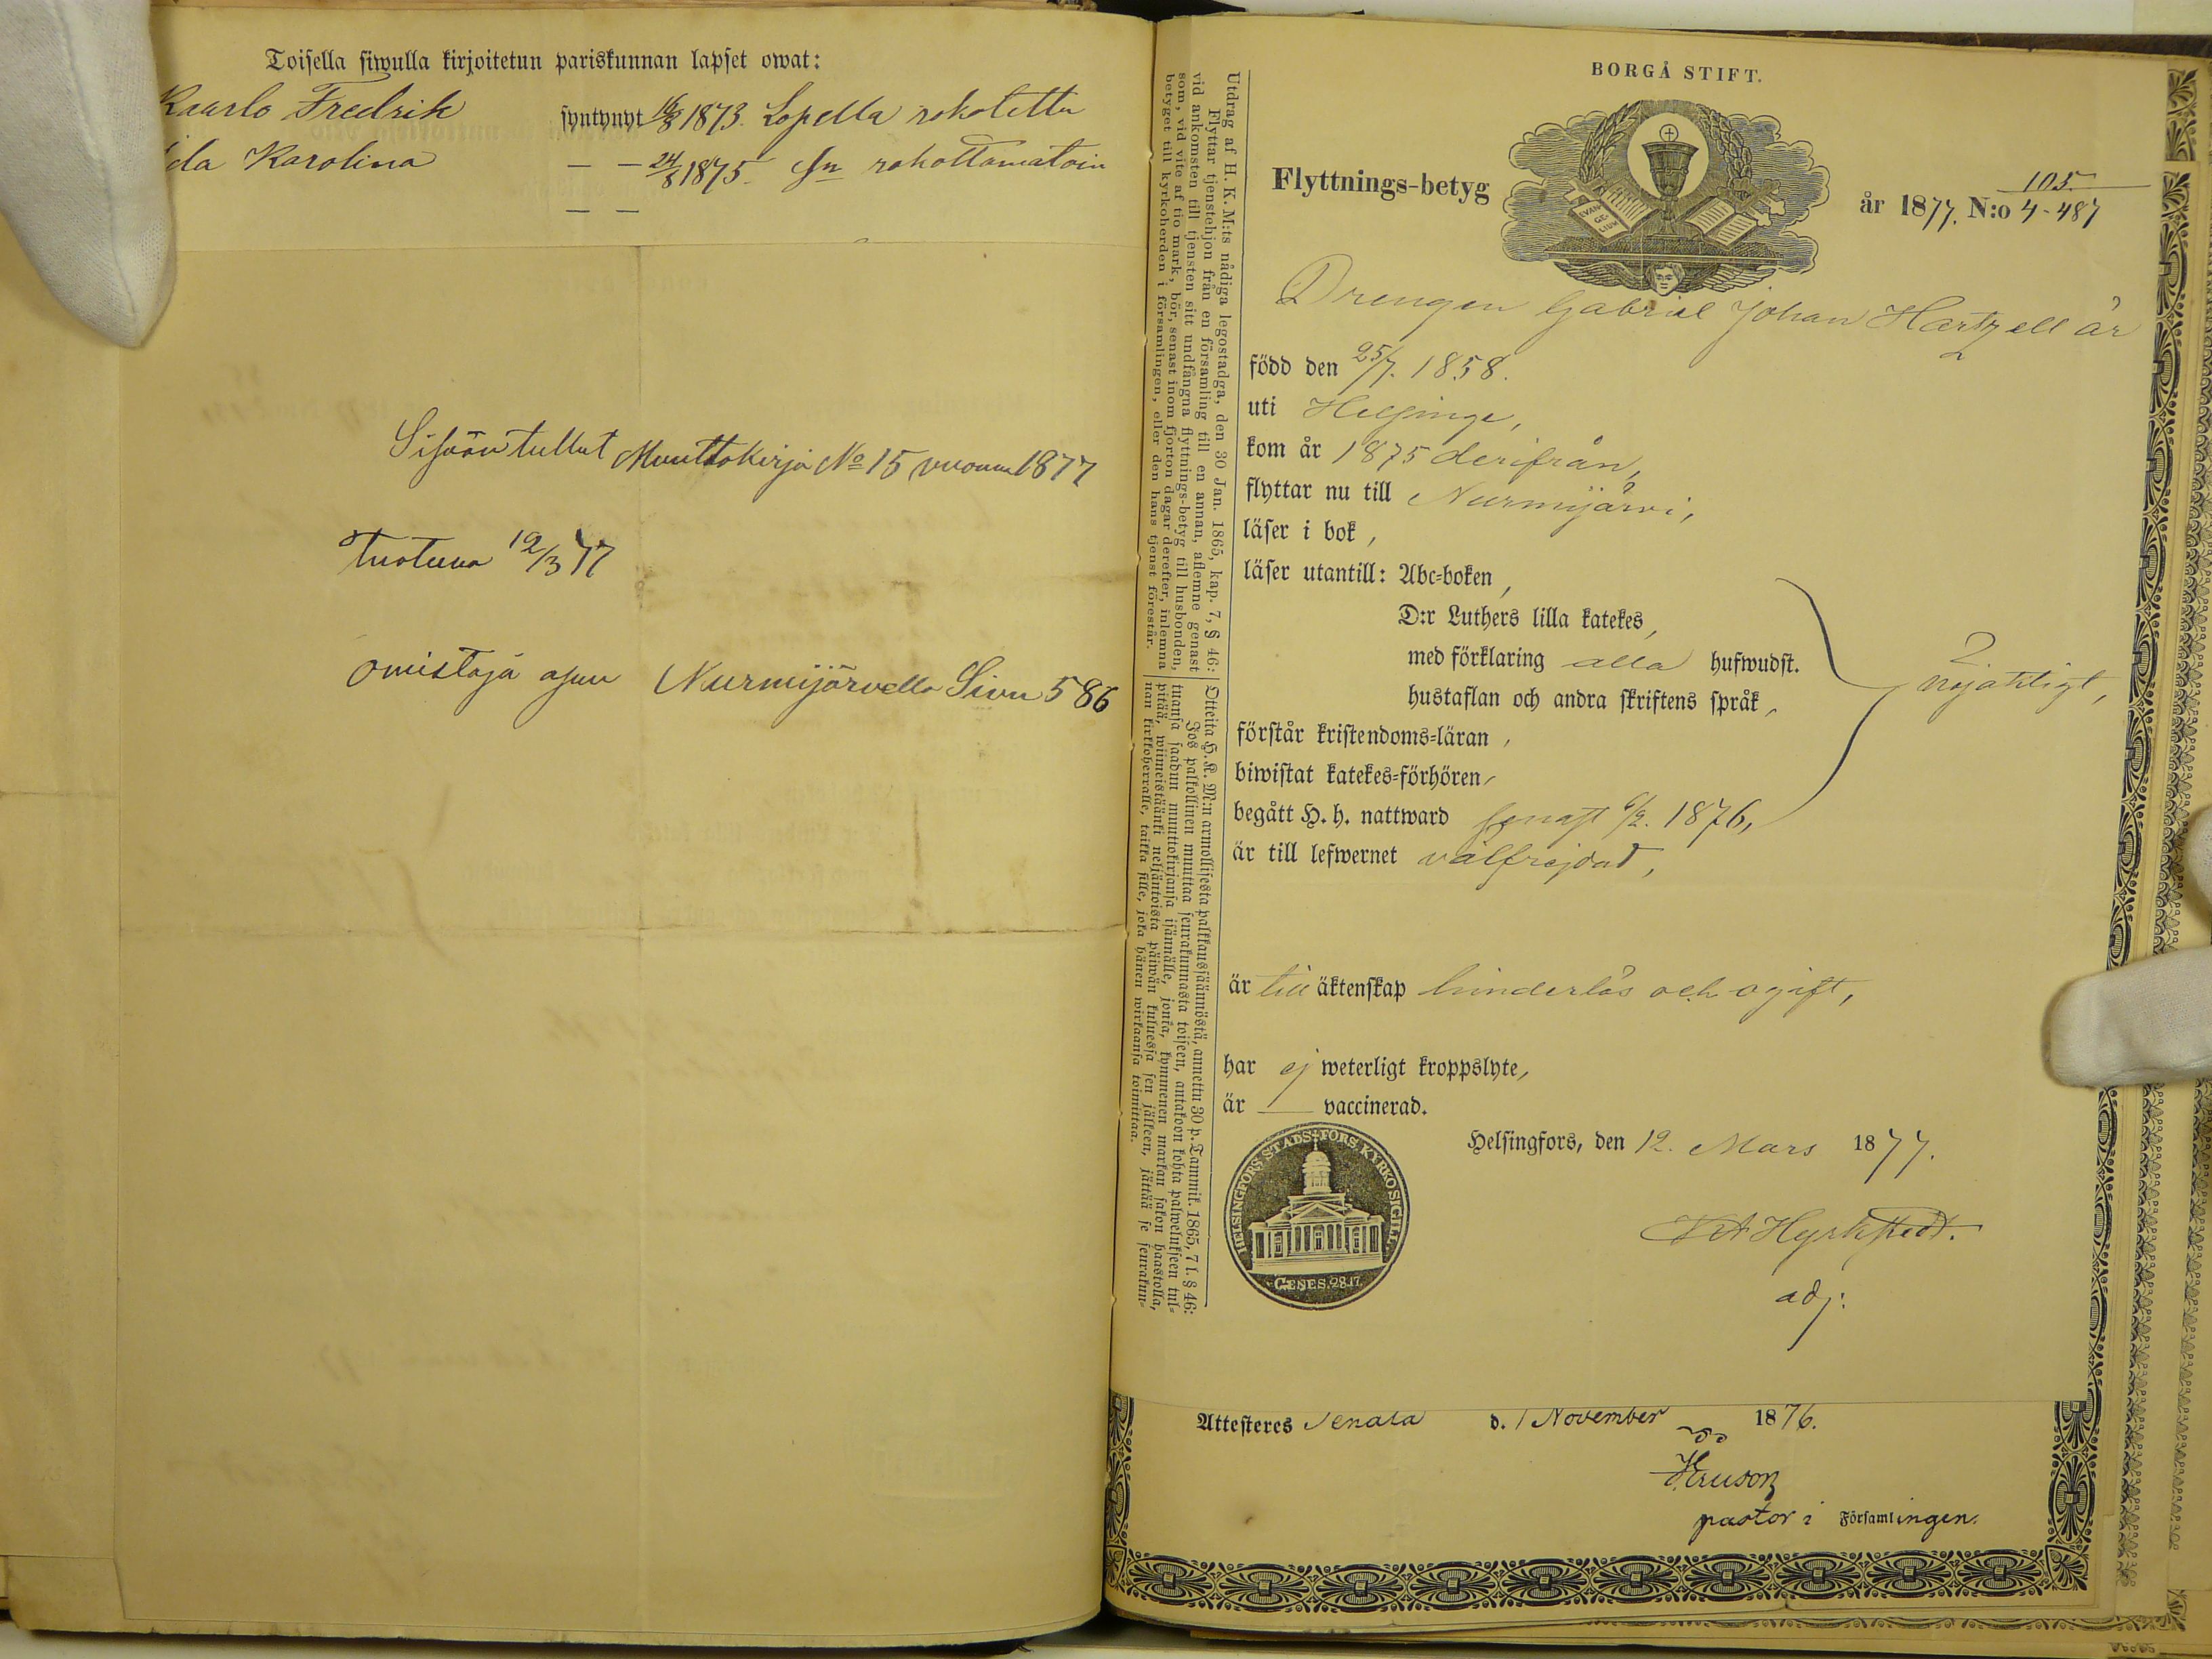 Toisella siwulla kirjoitetun pariskunnan lapset owat:
Kaarlo Fredrik syntynyt 16/8 1873. Lopella rokotettu
da Karolina — — 24/8 1875. rokottamatoin
— —
Sisään tullut Muuttokirja No 15 vuonna 1877
Tuotuna 12/3 77
Omistaja asuu Nurmijärvella Sivu 586
Utdrag af H. K. M:ts nådiga legostadga, den 30 Jan. 1865, kap. 7, § 46:
Flyttar tjenstehjon från en församling till en annan, aflemne genast
vid ankomsten till tjensten sitt undfångna flyttnings-betyg till husbonden,
som, vid vite af tio mark, bör, senast inom fjorton dagar derefter, inlemna
betyget till kyrkoherden i församlingen, eller den hans tjenst förestår.
Otteita H. K. M:n armollisesta palkkaussäännöstä, annettu 30 p. Tammik. 1865, 7 l. § 46:
Jos palkollinen muuttaa seurakunnasta toiseen, antakoon kohta palwelukseen tul-
tuansa saadun muuttokirjansa isännälle, jonka, kymmenen markan sakon haastolla,
pitää, wiimeistäänki neljäntoista päiwän kuluessa sen jälkeen, jättää se seurakun-
nan kirkkoherralle, taikka sille, joka hänen wirkaansa toimittaa.
BORGÅ STIFT.
EVAN
GE-
LIUM
Flyttnings-betyg år 1877. N:o 105. 4-487
Drengen Gabriel Johan Hartzell är
född den 25/7. 1858.
uti Helsinge,
kom år 1875 derifrån,
flyttar nu till Nurmijärvi,
läser i bok,
läser utantill: Abc-boken,
D:r Luthers lilla katekes,
med förklaring alla hufwudst.
hustaflan och andra skriftens språk,
nöjaktligt,
förstår kristendoms-läran,
biwistat katekes-förhören,
begått H. h. nattward senast 6/2. 1876,
är till lefwernet välfrejdad,
är till äktenskap hinderlös och ogift,
har ej weterligt kroppslyte,
är — vaccinerad.
Helsingfors, den 12. Mars 1877.
HELSINGFORS STADS-FÖRS. KYRKO SIGILL.
GENES. 28.17.
Hyrkstedt.
adj:
Attesteres d. 1 November 1876.
pastor i Församlingen.